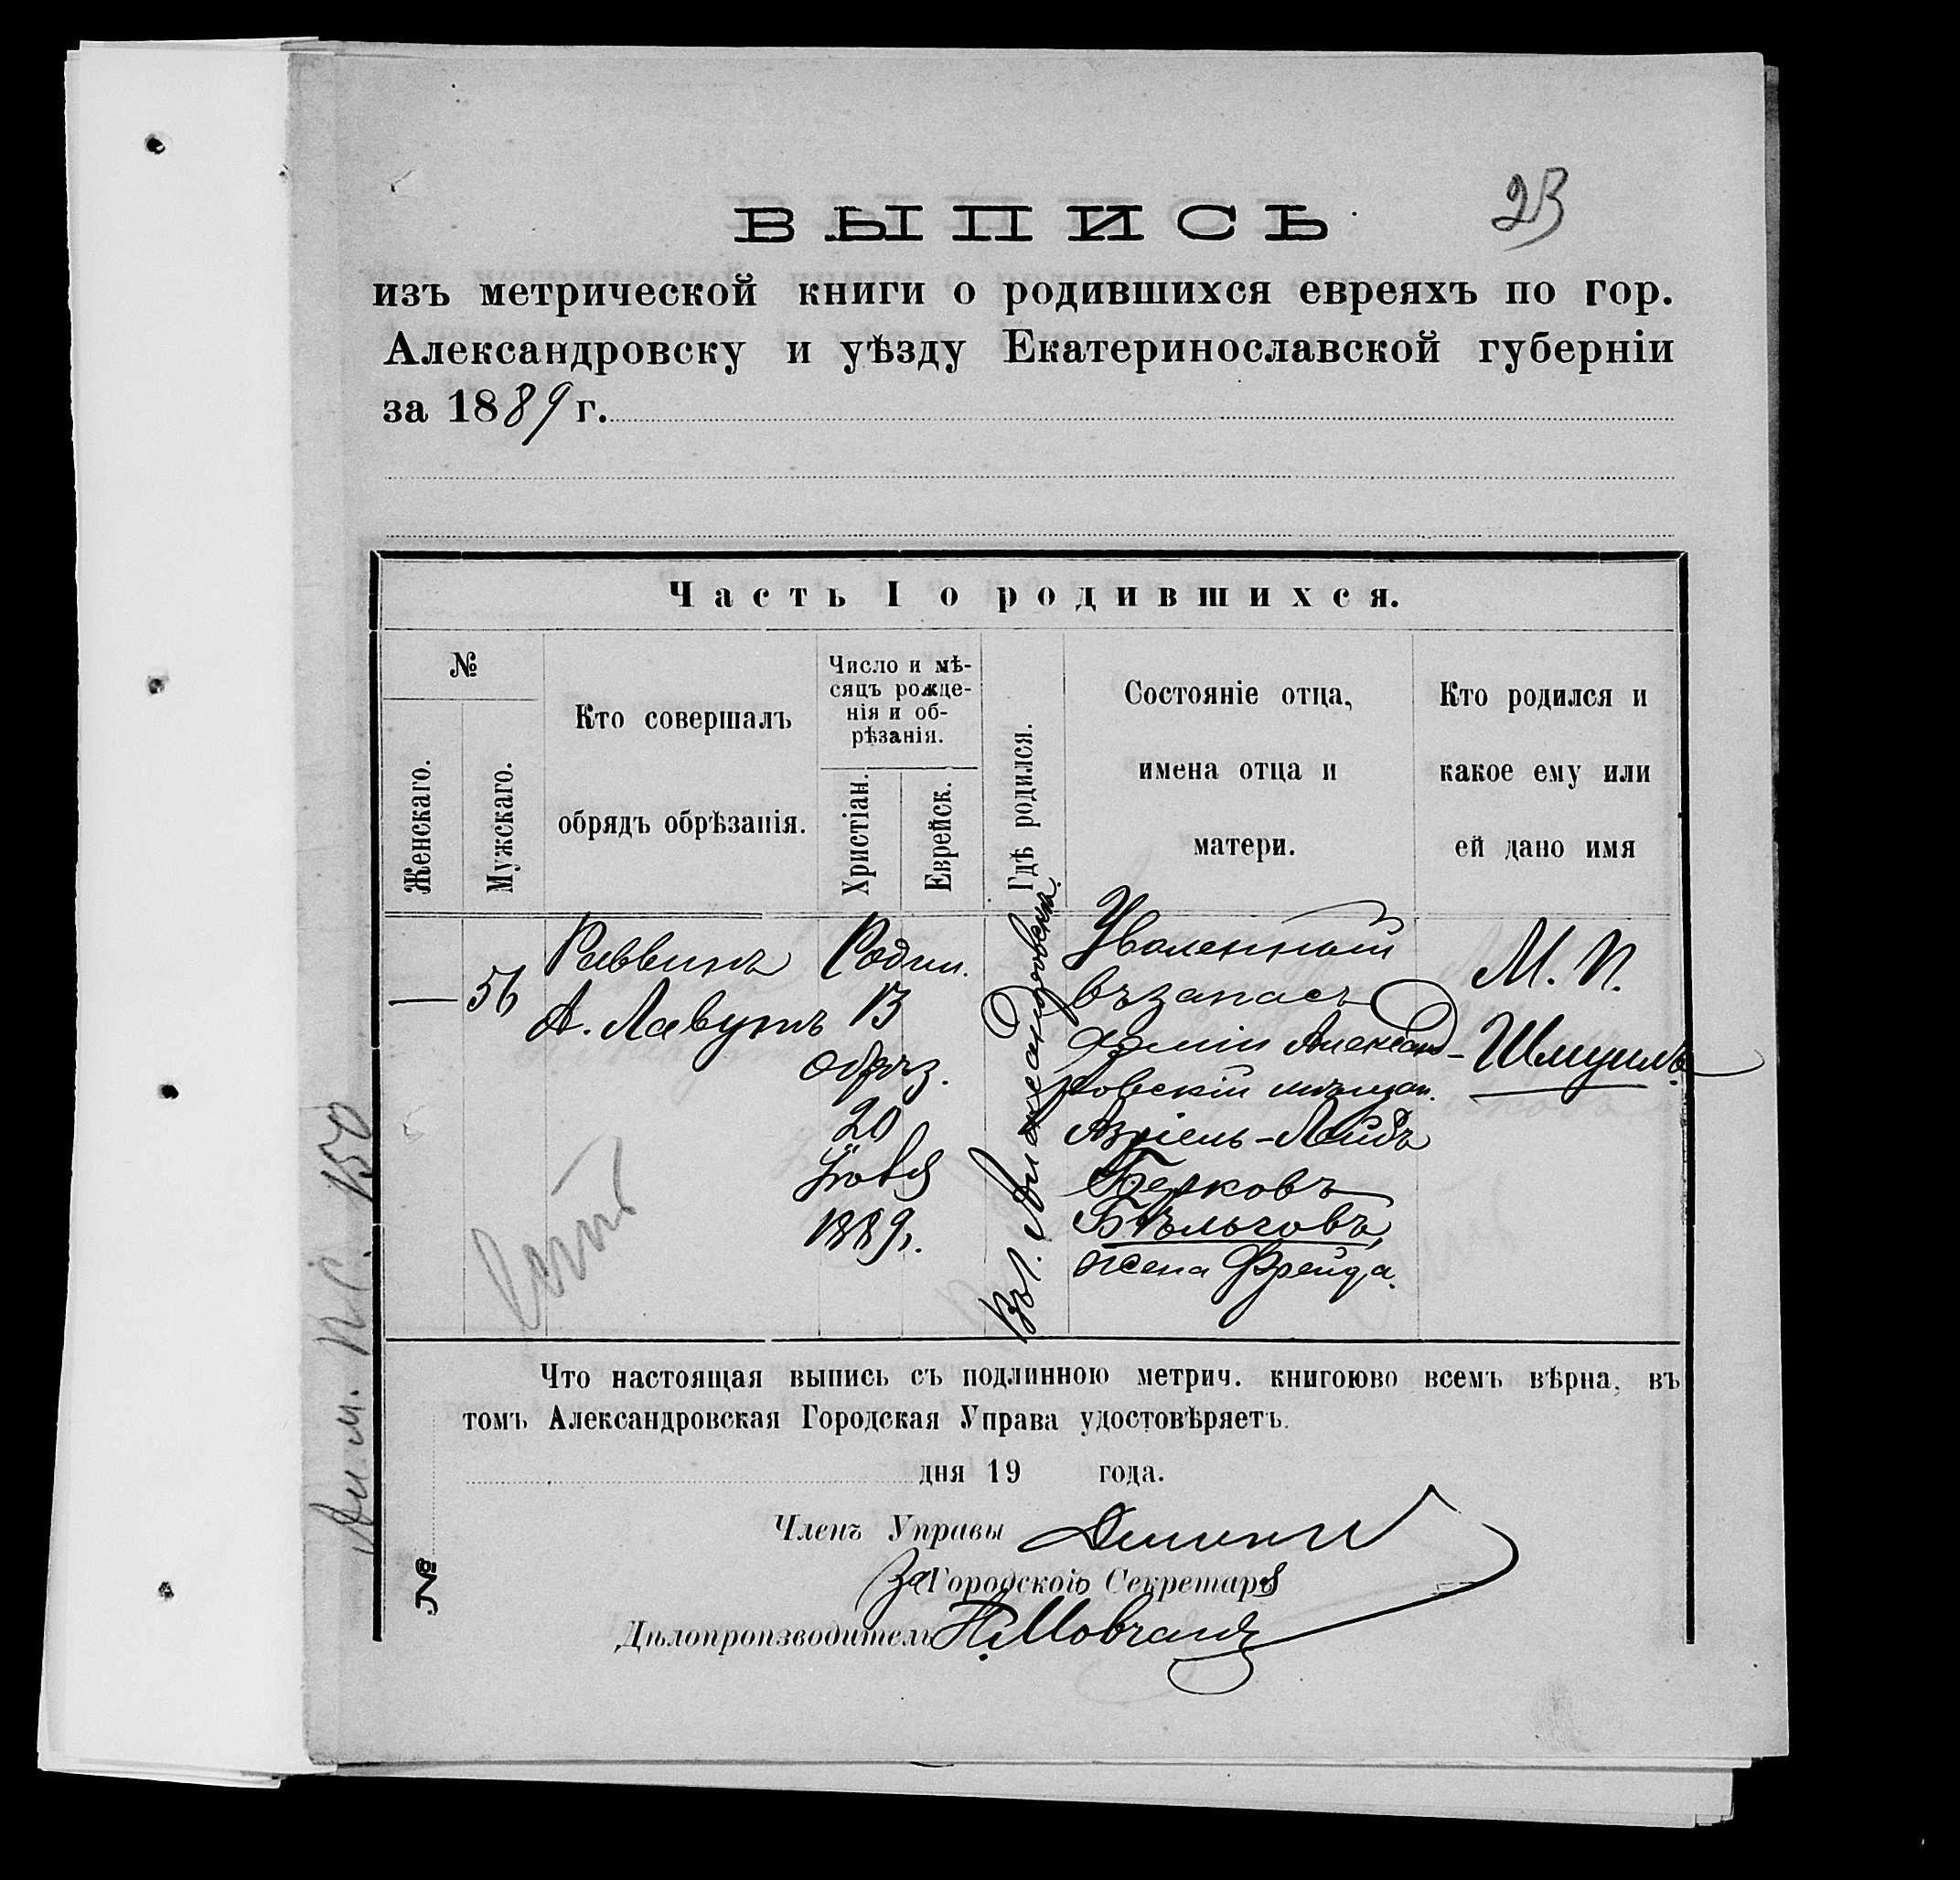 23
ВЫПИСЬ
изъ метрической книги о родившихся евреяхъ по гор.
Александровску и уѣзду Екатеринославской губерніи
за 1889 г.
Часть I о родившихся.
№
Женскаго.
Мужскаго.
Кто совершалъ
обрядъ обрѣзанія.
Число и мѣ-
сяцъ рожде-
нія и об-
рѣзанія.
Христіан.
Еврейск.
Гдѣ родился.
Состояніе отца,
имена отца и
матери.
Кто родился и
какое ему или
ей дано имя
—
56
Раввинъ
А. Лавутъ
Родил.
13
обрѣз.
20
1889 г.
Въ г. Александровскѣ.
Уволенный
въ запасъ
Арміи Александ-
ровскій мѣщан.
Азріель-Лейбъ
Берковъ
Бѣльговъ,
жена Фрейда.
М. П.
Шмуилъ.
Что настоящая выпись съ подлинною метрич. книгоюво всемъ вѣрна, въ
томъ Александровская Городская Управа удостовѣряетъ.
дня 19 года.
Членъ Управы
За Городского Секретаря
Дѣлопроизводитель Н. Мовчанъ
№